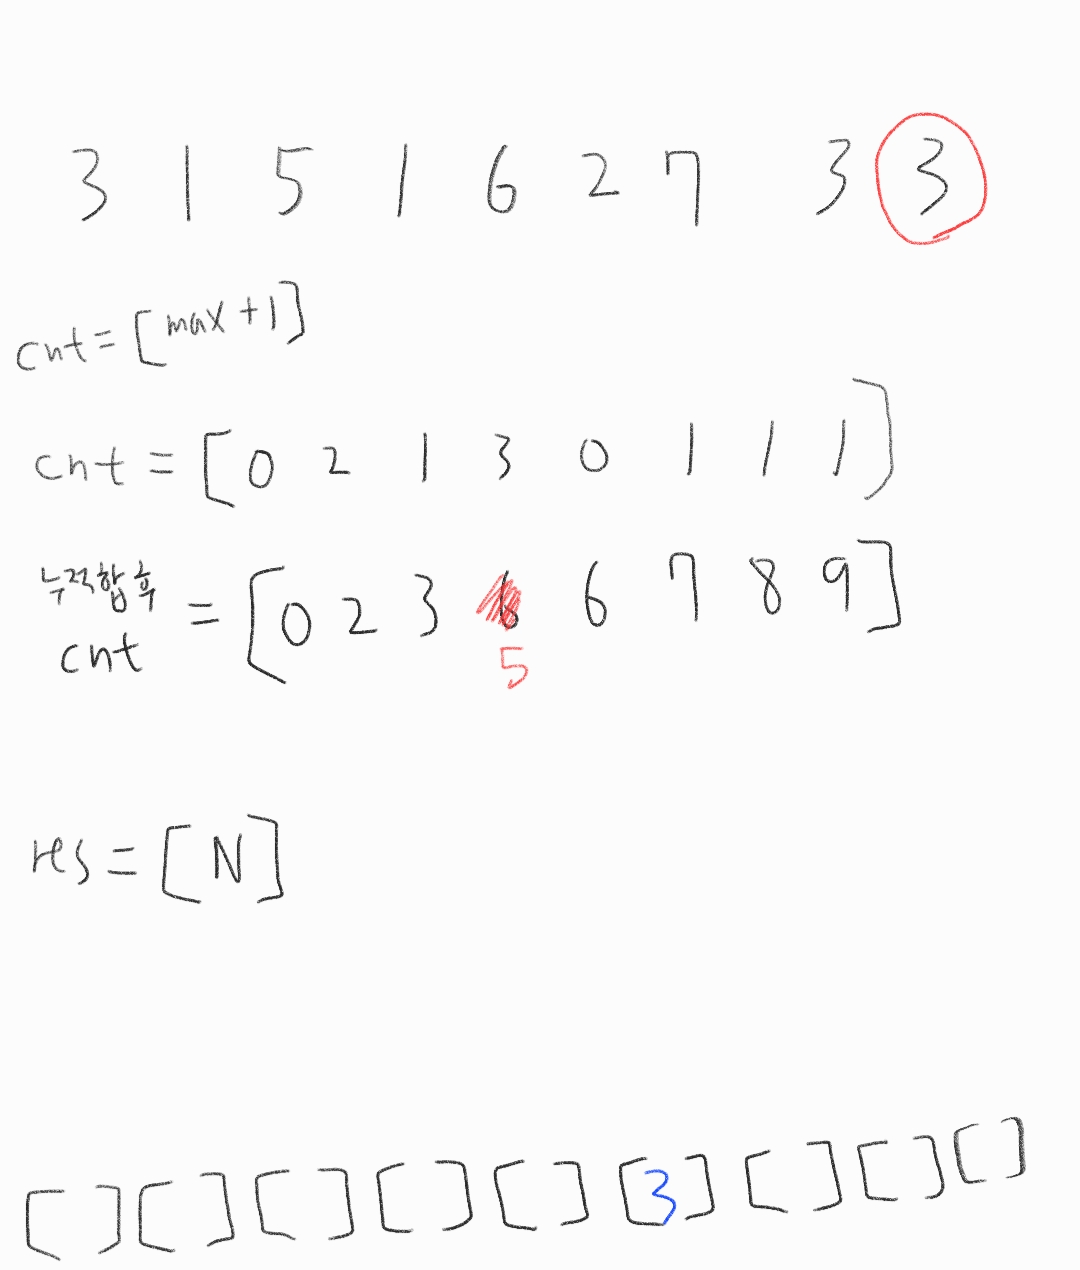 3 1 5 1 6 2 7 3 3
cnt = [max+1]
cnt = [0 2 1 3 0 1 1 1]
누적합 후
cnt = [0 2 3 6 6 7 8 9]
5
res = [N]
[ ] [ ] [ ] [ ] [ ] [3] [ ] [ ] [ ]